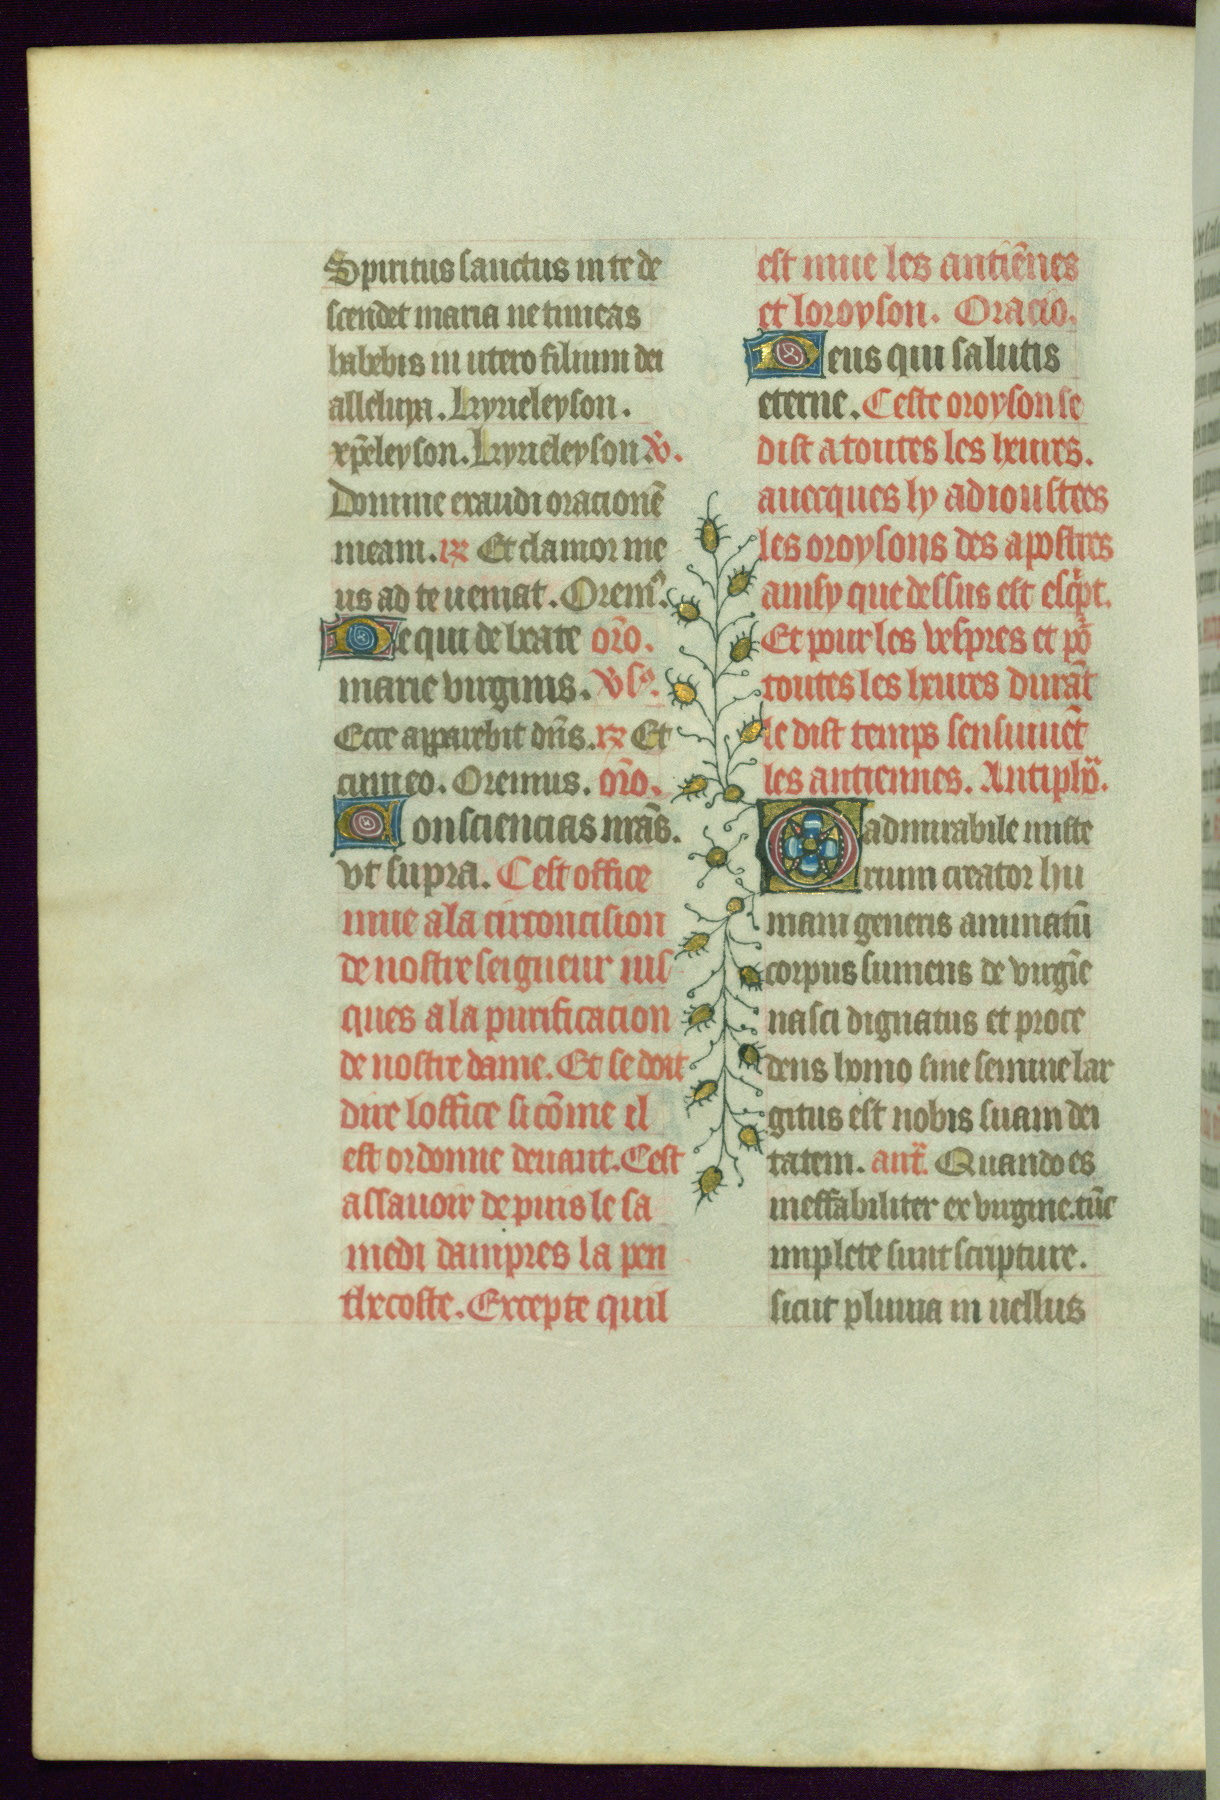 Spiritus sanctus in te de
scendet maria ne timeas
habebis in utero filium dei
alleluya. Kyrieleyson.
xp̄eleyson. Kyrieleyson ℣.
Domine exaudi oracionē
meam. ℟ Et clamor me
us ad te ueniat. Oremꝰ.
De qui de beate oro̅.
marie virginis. ℣sꝰ.
Ecce apparebit dn̄s. ℟ Et
cum eo. Oremus. oro̅.
Consciencias nr̄as.
vt supra. Cest office
mue a la circoncision
de nostre seigneur ius
ques a la purificacion
de nostre dame. Et se doit
dire loffice si cōme il
est ordonne deuant. Cest
assauoir depuis le sa
medi dampres la pen
thecoste. Excepte quil
est mue les antiēnes
et loroyson. Oracio.
Deus qui salutis
eterne. Ceste oroyson se
dist a toutes les heures.
auecques ly adioustees
les oroysons des apostres
ainsy que dessus est escͥpt.
Et pour les vespres et po᷑
toutes les heures durāt
le dist temps sensuiuēt
les antiennes. Antiphoᷓ.
O admirabile miste
rium creator hu
mani generis animatū
corpus sumens de virgīe
nasci dignatus et proce
dens homo sine semine lar
gitus est nobis suam dei
tatem. antᷓ. Quando es
ineffabiliter ex virgine.tūc
implete sunt scripture.
sicut pluuia in uellus